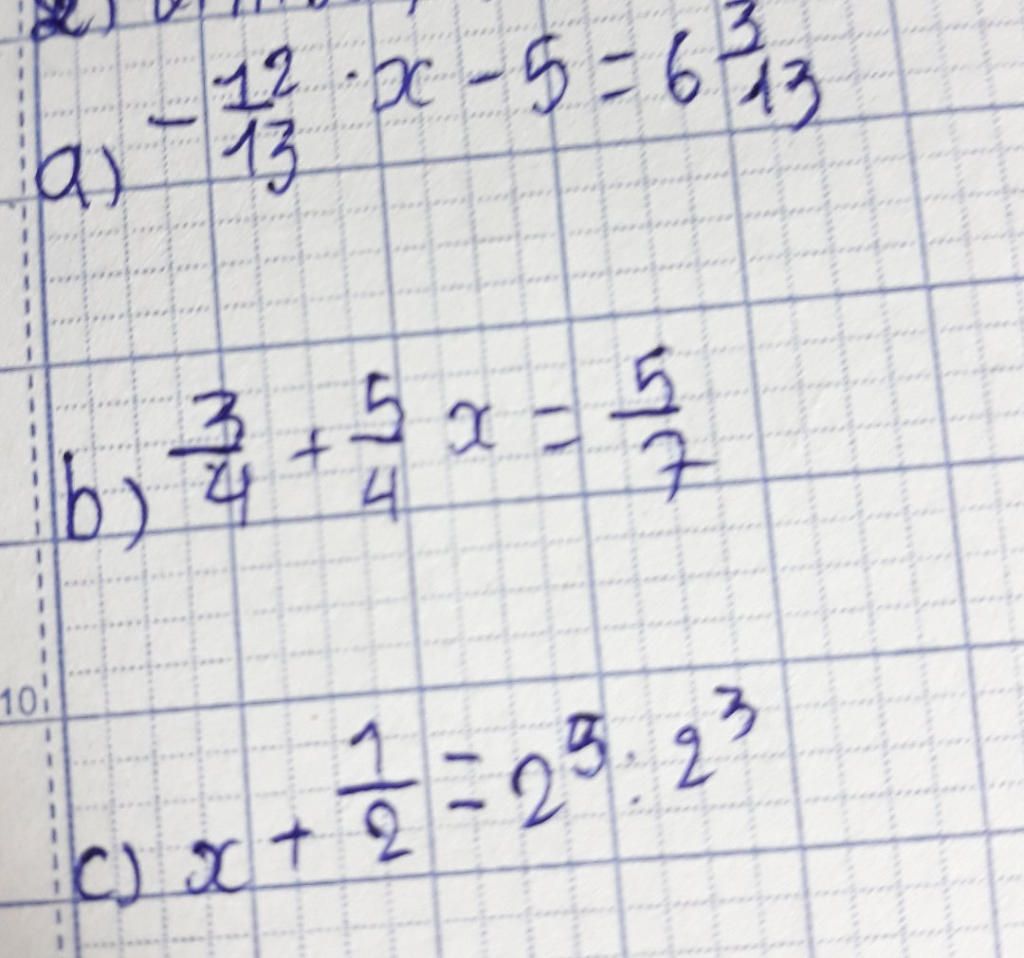 2)
a) - 12/13 · x - 5 = 6 3/13
b) 3/4 + 5/4 x = 5/7
10
c) x + 1/2 = 2^5 : 2^3